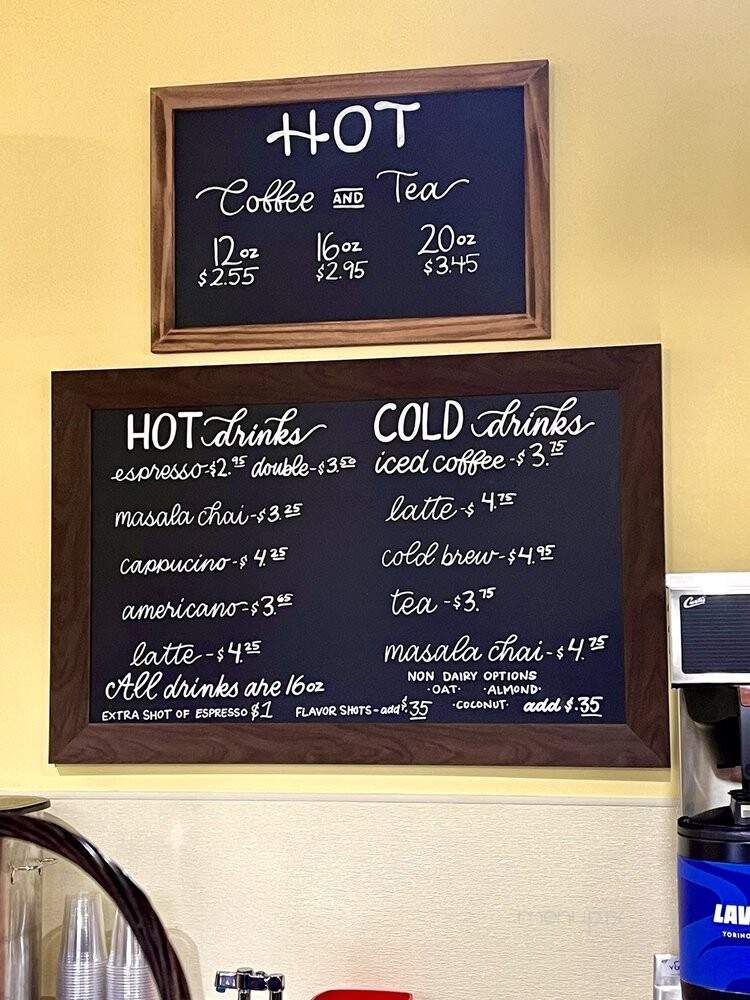 HOT
Coffee AND Tea
12oz 16oz 20oz
$2.55 $2.95 $3.45
HOT drinks
espresso-$2.95 double-$3.50
masala chai-$3.25
cappucino-$4.25
americano-$3.65
latte-$4.25
All drinks are 16oz
EXTRA SHOT OF ESPRESSO $1
FLAVOR SHOTS-add $.35
COLD drinks
iced coffee-$3.75
latte-$4.75
cold brew-$4.95
tea-$3.75
masala chai-$4.75
NON DAIRY OPTIONS
·OAT· ·ALMOND·
·COCONUT· add $.35
Curtis
LAV
TORINO